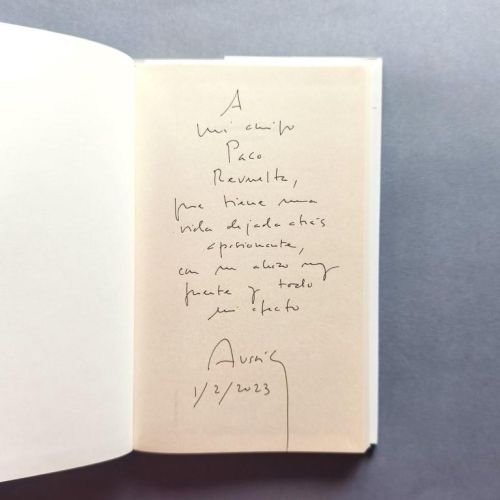 A
mi amigo
Paco
Revuelta,
que tiene una
vida dejada atrás
apasionante,
con un abrazo muy
fuerte y todo
mi afecto
1/2/2023